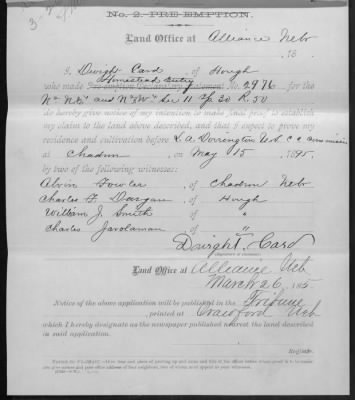 No. 2.-PRE-EMPTION.
Land Office at Alliance Nebr
18
I, Dwight Card, of Hough
Homestead Entry
who made Pre-emption Declaratory Statement No. 2976 for the
and Sec 11 Tp 30 R. 50
do hereby give notice of my intention to make final proof to establish
my claim to the land above described, and that I expect to prove my
residence and cultivation before L. A. Dorrington U.S. C. C. Commission
at Chadron on May 15, 1895,
by two of the following witnesses:
Alvin Fowler, of Chadron Nebr
Charles F. Dargan, of Hough
William J. Smith, of "
Charles Jarolaman, of "
Dwight Card
(Signature of claimant)
Land Office at Alliance Neb
March 26, 1895
Notice of the above application will be published in the Tribune
, printed at Crawford Neb
which I hereby designate as the newspaper published nearest the land described
in said application.
Register.